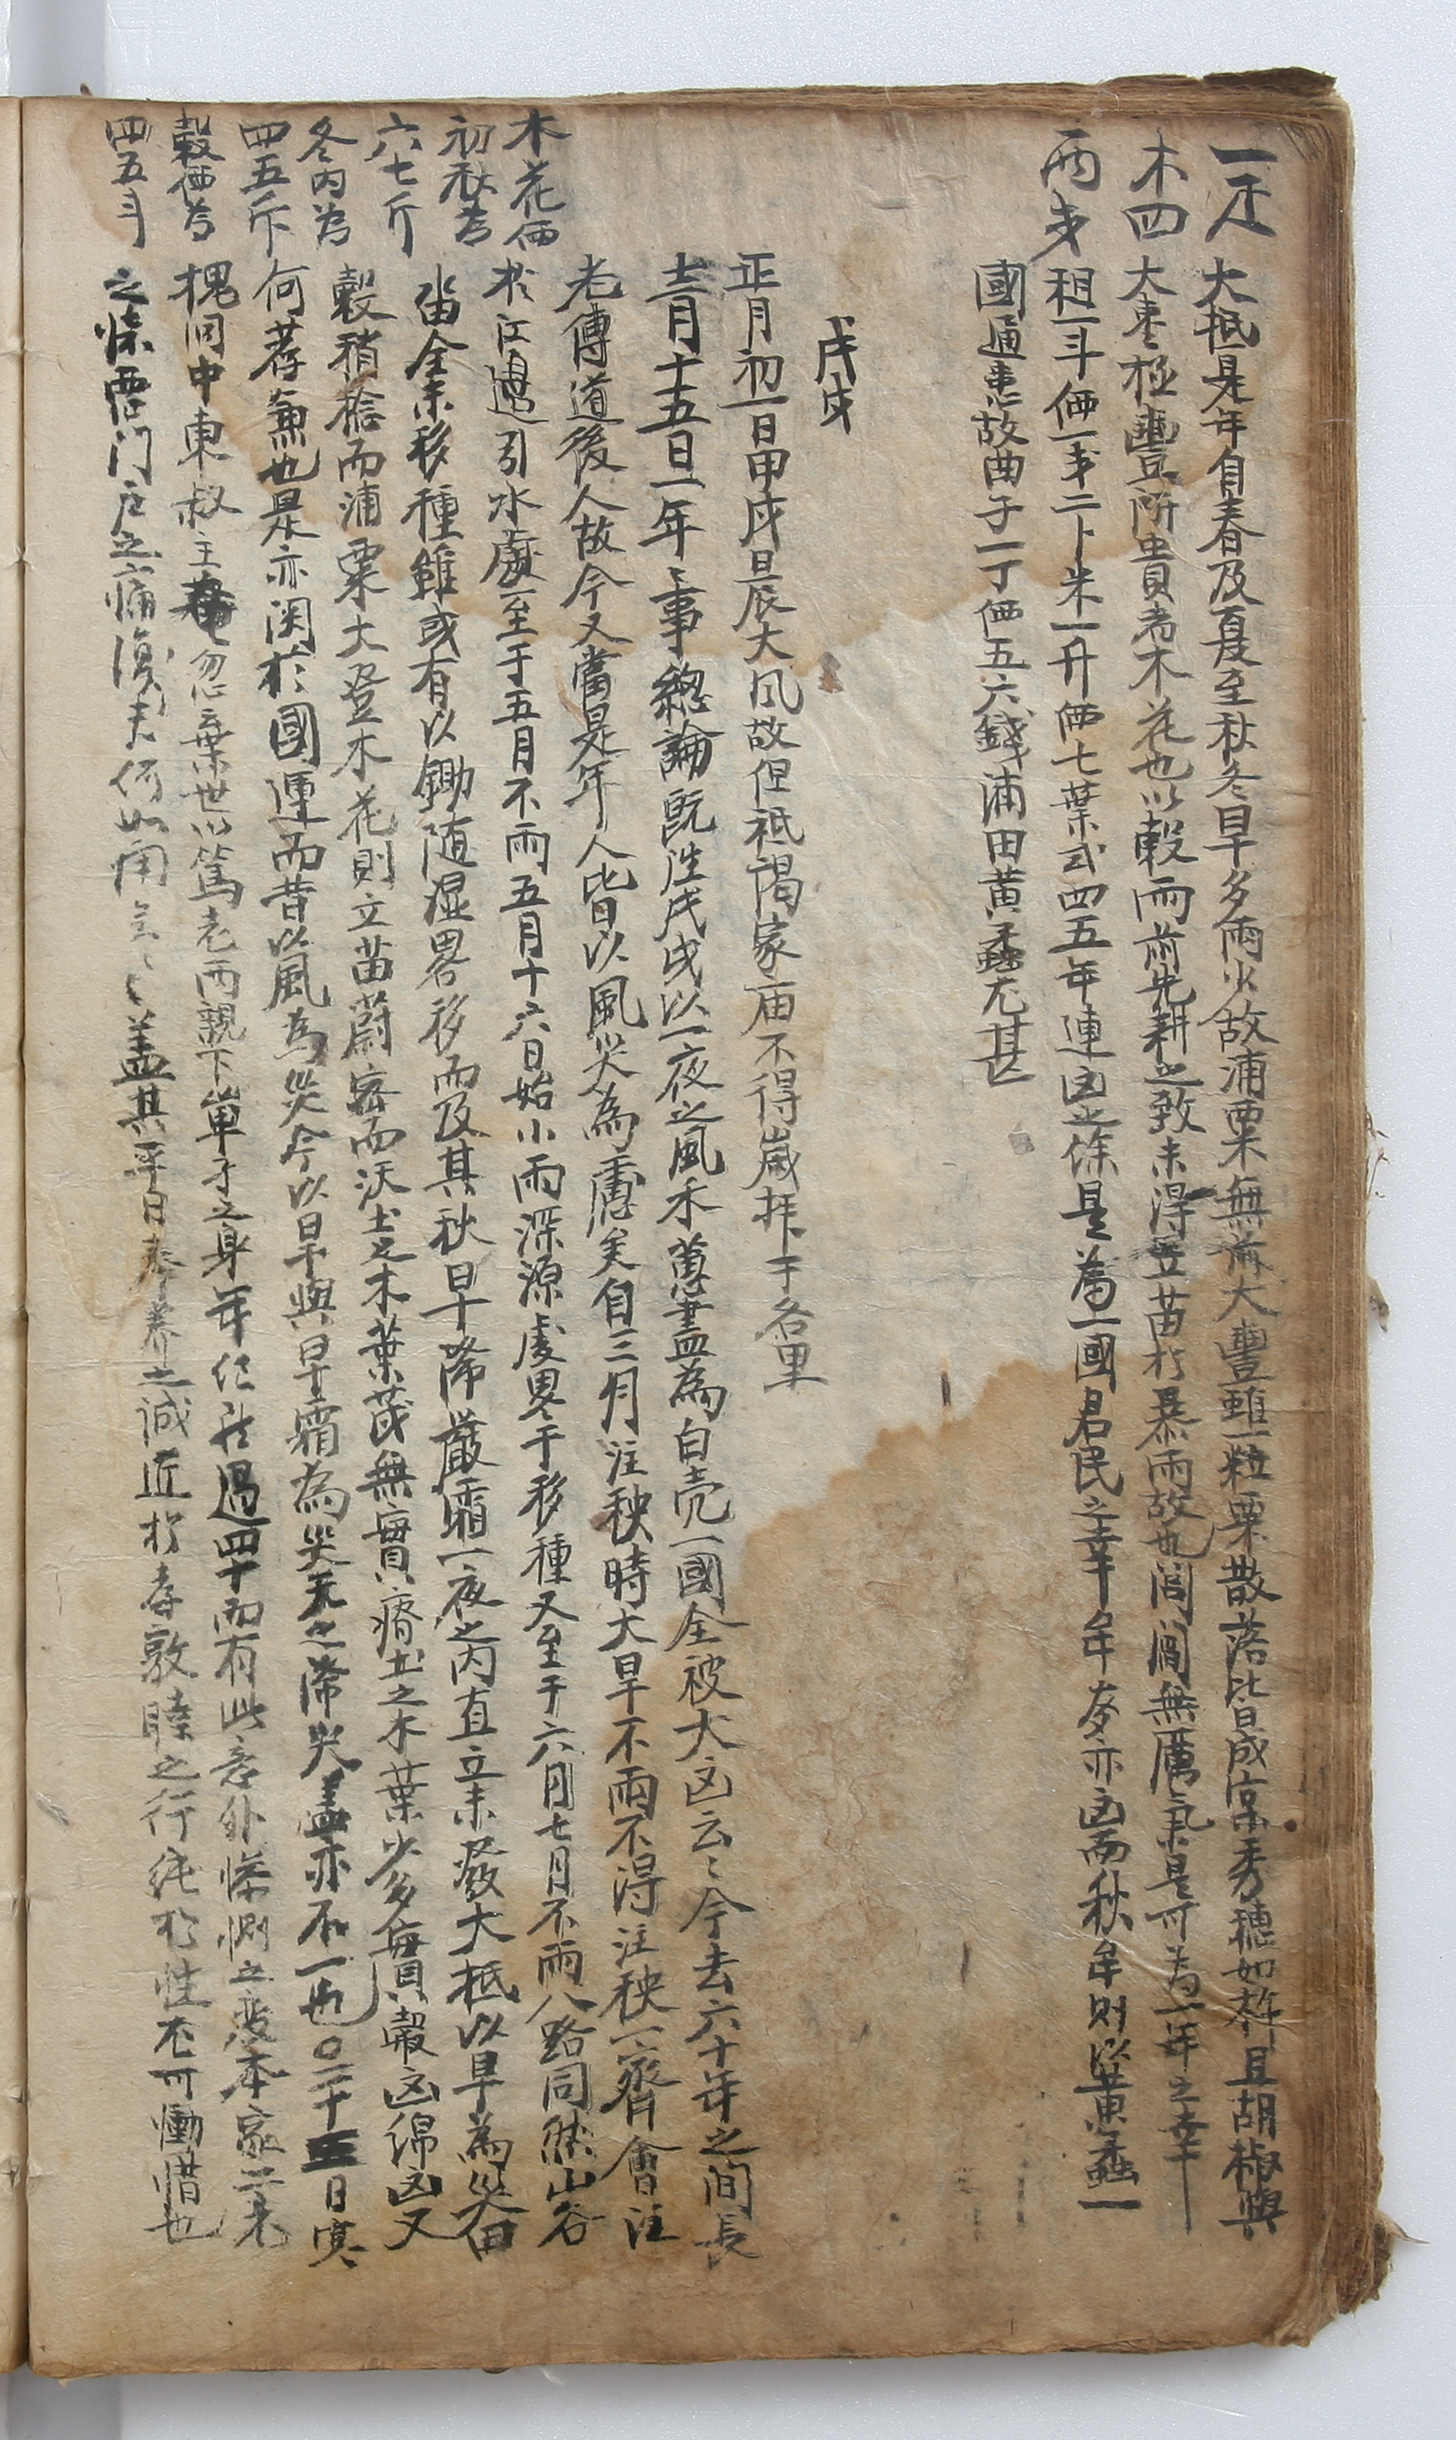 一疋
木四
兩戔
大抵是年自春及夏至秋冬旱多雨少故浦粟無前大豊雖一粒粟散落皆成京秀穗如杵且胡椒與
大枣極豊所貴者木花也以穀雨前先耕之致未得立苗於暴雨故也閭閻無厲氣是可为一年之幸
租一斗価一戔二卜米一升価七葉式四五年連凶之餘是為一國君民之幸牟麥亦凶而秋牟則以黃虫一
國通患故曲子一丁価五六錢浦田黃虫尤甚
戊戌
正月初一日甲戌晨大风故但祗謁家庙不得歲拝于各里
十二月十五日一年之事總論既往戊戌以一夜之風禾蔥盡為白壳一國全被大凶云云今去六十年之間長
老傳道後人故今又當是年人皆以風災為慮矣自三月注秧時大旱不雨不得注秧一齊會注
於江邉引水處至于五月不雨五月十六日始小雨深源處畧于移種又至于六月七月不雨八路同然山谷
畓全未移種雖或有以鋤随湿畧移而及其秋早降嚴霜一夜之內直立未發大抵以旱為災田
穀稍捨而浦粟大登木花則立苗蔚密而沃土之木葉茂無實瘠土之木葉少多無實穀凶綿凶又
何荐無也是亦関於國運而昔以風為災今以旱與早霜為災天之降災盖亦不一也〇二十五日寒
槐洞中東叔主奄忽棄世以篤老両親下單孑之身年纔過四十而有此意外慘惻之变本家二老
之悰門户之痛復夫何如痛矣痛矣盖其平日奉养之诚近於孝敦睦之行純於性不可慟惜也
木花価
初秋为
六七斤
冬内为
四五斤
穀価为
四五斗